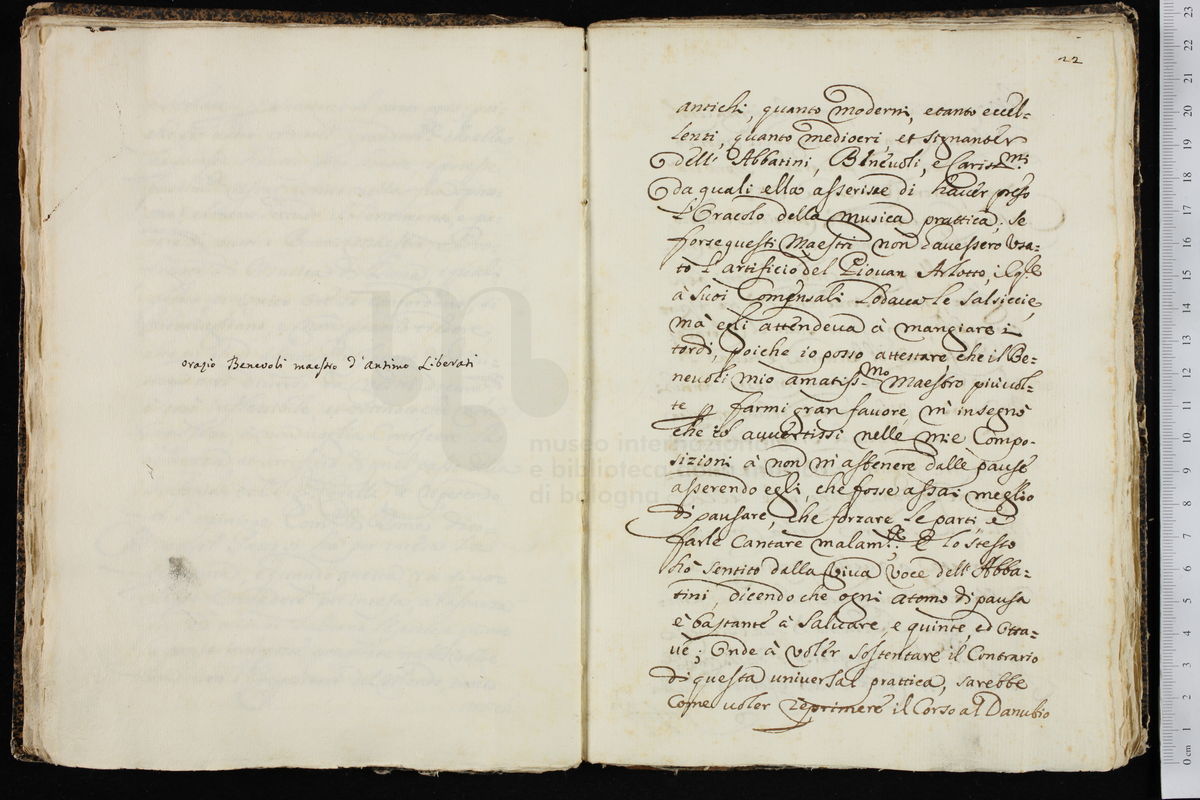 orazio Benevoli maestro d'Antimo Liberati
22
antichi, quanto moderni, e tanto eccel-
lenti, quanto mediocri, et signanter
dell'Abbatini, Benevoli, e Cariss.mi
da quali ella asserisce di haver preso
l'Oracolo della musica prattica; se
forse questi Maestri non havessero usa-
to l'artificio del Piovan Arlotto, il qle
à suoi Comensali Lodava le salsiccie,
mà egli attendeva à mangiare i
tordi, poiche io posso attestare che il Be-
nevoli mio amatiss.mo Maestro più vol-
te farmi gran favore, m'insegnò
che io avvertissi nelle mie Compo-
sizioni à non m'astenere dalle pause
asserendo egli, che fosse assai meglio
di pausare, che forzare le parti, e
farle Cantare malam.te E lo stesso
hò sentito dalla viva voce dell'Abba-
tini, dicendo che ogni atomo di pausa
è bastante à salvare, e quinte, ed otta-
ve; Onde à voler sostentare il Contrario
di questa universal prattica, sarebbe
Come voler reprimere il Corso al Danubio
museo internazionale
e biblioteca della musica
di bologna
0 cm 1 2 3 4 5 6 7 8 9 10 11 12 13 14 15 16 17 18 19 20 21 22 23